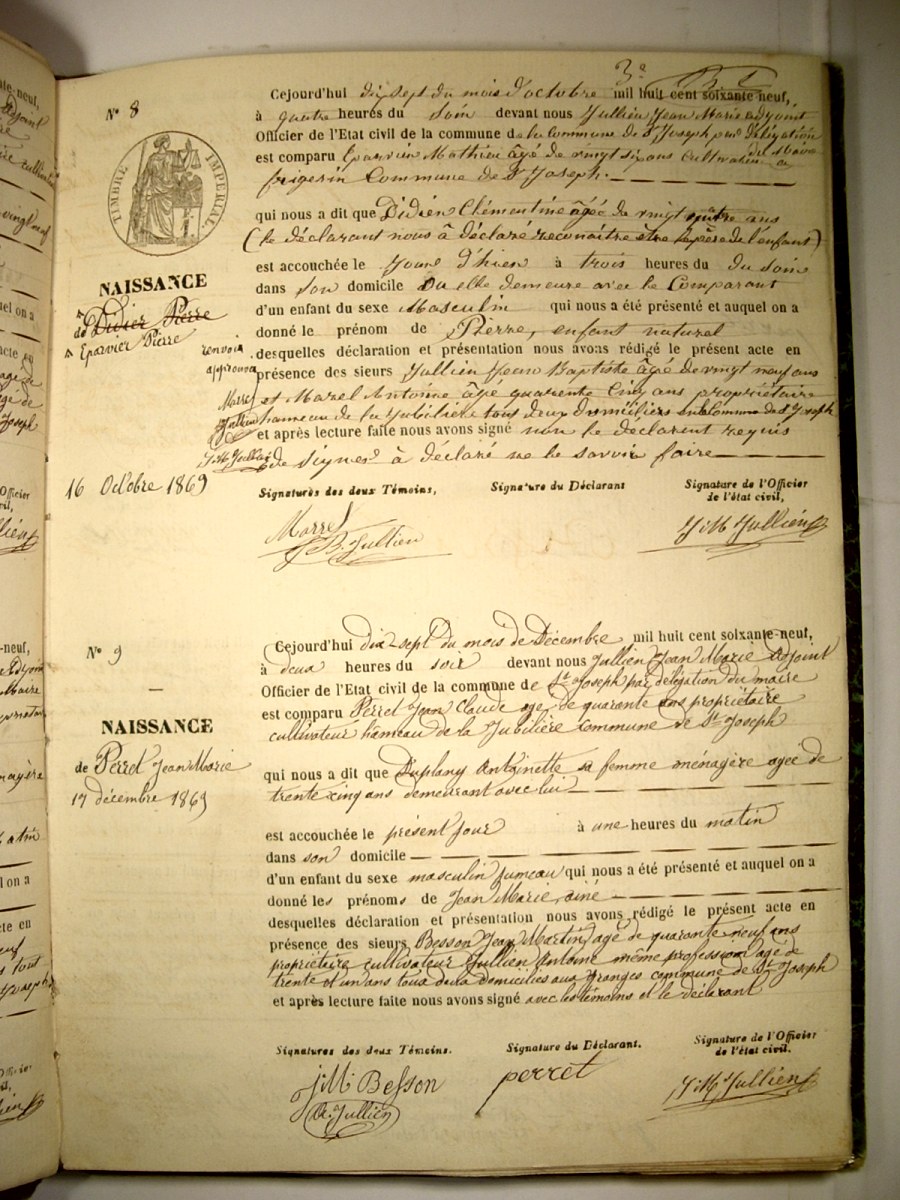 3e
N° 8
Cejourd'hui dix sept du mois d'octobre mil huit cent soixante neuf,
à quatre heures du soir devant nous Jullien Jean Marie adjoint
Officier de l'Etat civil de la commune de la Commune de St Joseph par délégation
du Maire
est comparu Eparvier Mathieu âgé de vingt six ans Cultivateur a
frigerin Commune de St Joseph.
TIMBRE IMPERIAL.
qui nous a dit que Didier Clémentine âgée de vingt quatre ans
(le déclarant nous à déclaré reconaitre etre le père de l'enfant)
est accouchée le Jour d'hier à trois heures du du soir
dans son domicile Ou elle demeure avec le Comparant
NAISSANCE
d'un enfant du sexe Masculin qui nous a été présenté et auquel on a
de Didier Pierre
donné le prénom de Pierre, enfant naturel
Eparvier Pierre
renvoi
approuvé
desquelles déclaration et présentation nous avons rédigé le présent acte en
présence des sieurs Jullien Jean Baptiste âgé de vingt neuf ans
Marrel
et Marel Antoine âgé quarente Cinq ans propriétaire
Jullien
hameau de la Jubilière tous deux domiciliers en la Commune de St Joseph
et après lecture faite nous avons signé non le déclarent requis
J. M. Jullien
de signer à déclaré ne le savoir faire
16 Octobre 1869
Signatures des deux Témoins,
Signature du Déclarant
Signature de l'Officier
de l'état civil,
Marrel
J B. Jullien
J. M Jullien
N° 9
Cejourd'hui dix-sept du mois de Décembre mil huit cent soixante-neuf,
à deux heures du soir devant nous Jullien Jean Marie Adjoint
Officier de l'Etat civil de la commune de St Joseph par délégation du maire
est comparu Perret Jean Claude age de quarante ans propriétaire
cultivateur hameau de la Jubilière Commune de St Joseph
NAISSANCE
de Perret Jean Marie
17 décembre 1869
qui nous a dit que Duplany Antoinette sa femme ménagère agée de
trente cinq ans demeurant avec lui
est accouchée le présent jour à une heures du matin
dans son domicile
d'un enfant du sexe masculin jumeau qui nous a été présenté et auquel on a
donné les prénoms de Jean Marie, ainé
desquelles déclaration et présentation nous avons rédigé le présent acte en
présence des sieurs Besson Jean Martin, agé de quarante neuf ans
propriétaire cultivateur Jullien Antoine même profession agé de
trente et un ans tous deux domiciliés aux Granges commune de St Joseph
et après lecture faite nous avons signé avec les témoins et le déclarant
Signatures des deux Témoins.
Signature du Déclarant.
Signature de l'Officier
de l'état civil.
J. M. Besson
At. Jullien
perret
J. M Jullien